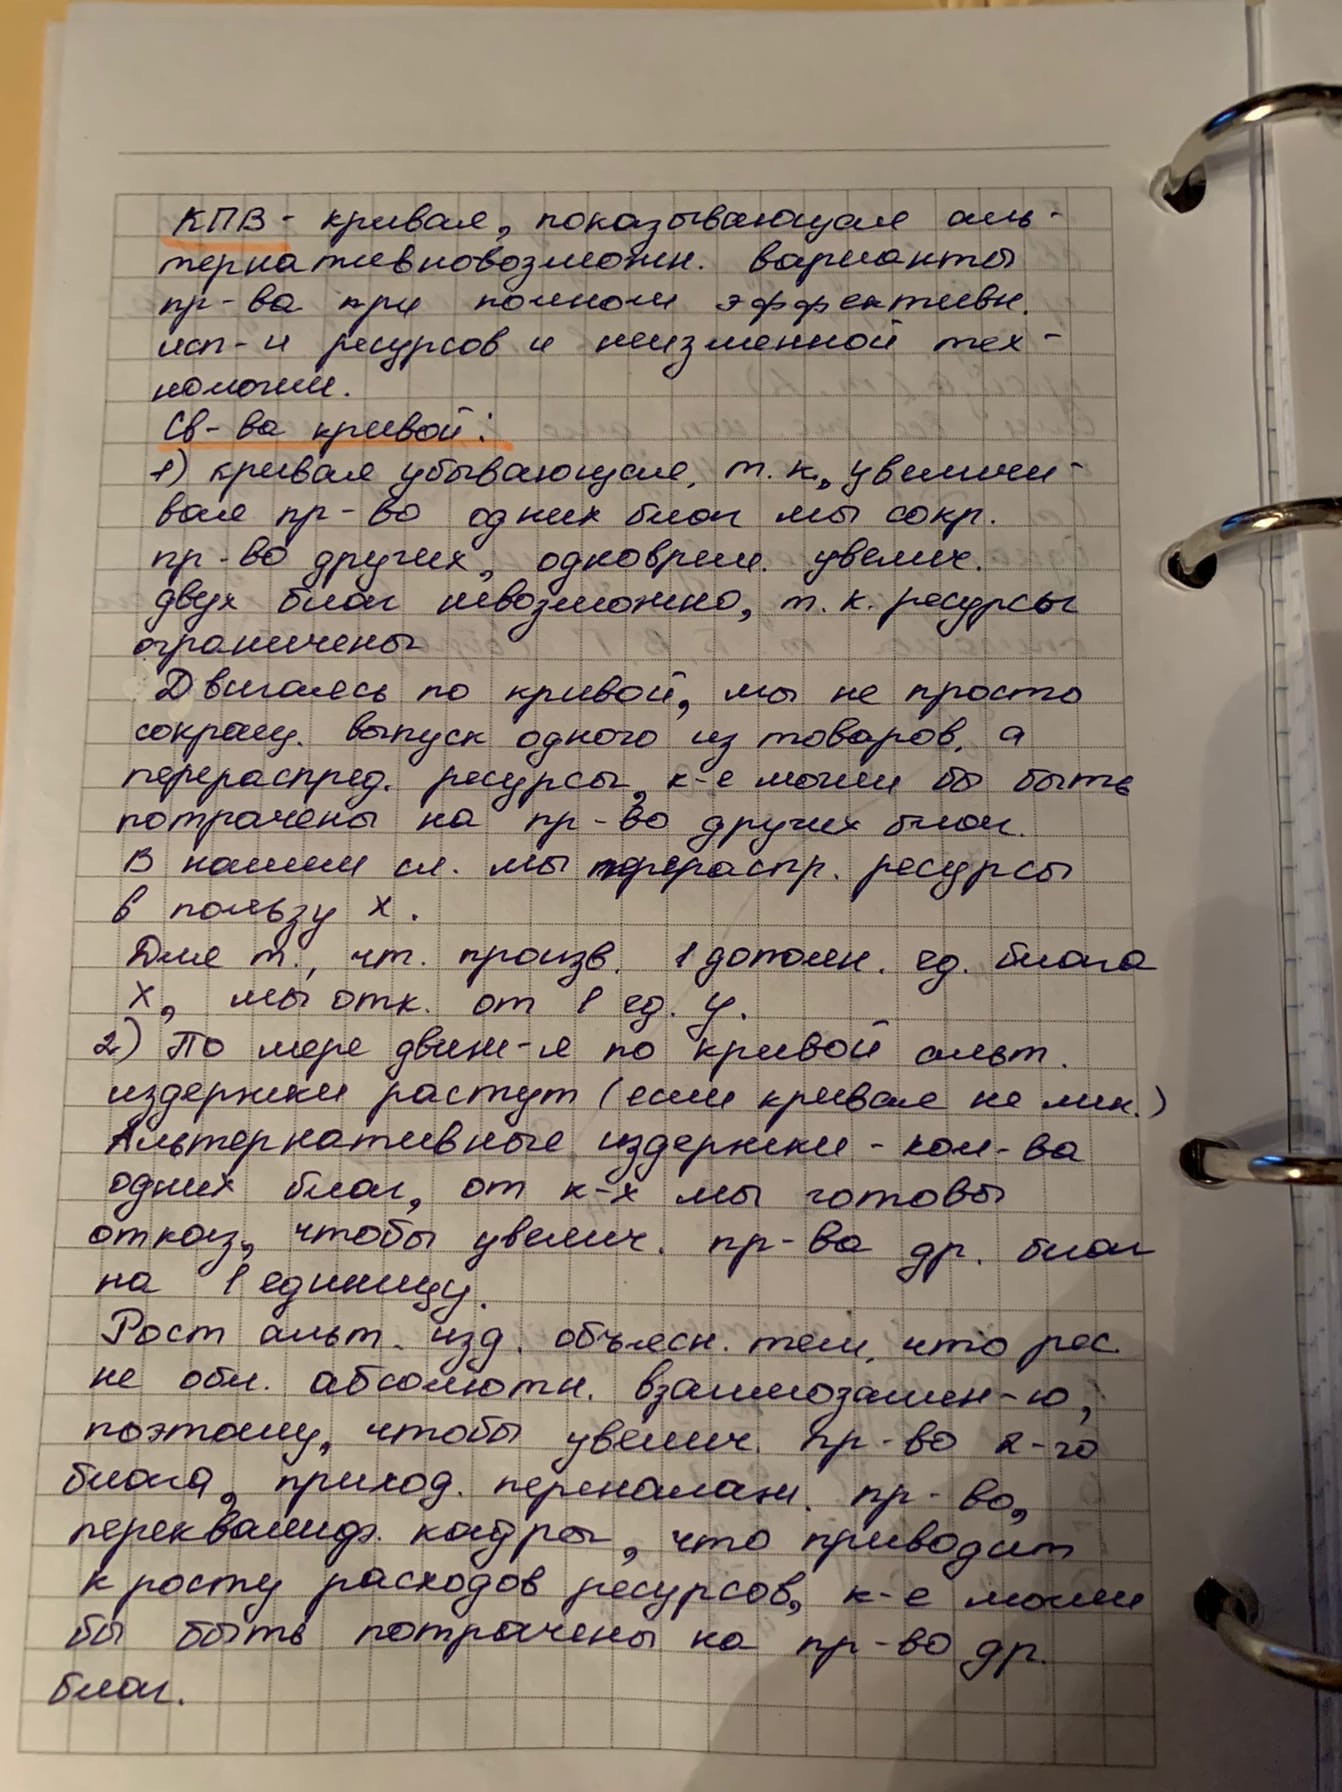 КПВ - кривая, показывающая аль-
тернативновозможн. варианты
пр-ва при полном эффективн.
исп-и ресурсов и неизменной тех-
нологии.
Св-ва кривой:
1) кривая убывающая, т.к., увеличи-
вая пр-во одних благ мы сокр.
пр-во других, одноврем. увелич.
двух благ невозможно, т.к. ресурсы
ограничены
Двигаясь по кривой, мы не просто
сокращ. выпуск одного из товаров, а
перераспред. ресурсы, к-е могли бы быть
потрачены на пр-во других благ.
В нашем сл. мы перераспр. ресурсы
в пользу X.
Для т., чт. произв. 1 дополн. ед. блага
X, мы отк. от 1 ед. y.
2) По мере движ-я по кривой альт.
издержки растут (если кривая не лин.)
Альтернативные издержки - кол-ва
одних благ, от к-х мы готовы
отказ., чтобы увелич. пр-ва др. благ
на 1 единицу.
Рост альт. изд. объясн. тем, что рес.
не обл. абсолютн. взаимозамен-ю,
поэтому, чтобы увелич. пр-во 2-го
блага, приход. переналаж. пр-во,
переквалиф. кадры, что приводит
к росту расходов ресурсов, к-е могли
бы быть потрачены на пр-во др.
благ.